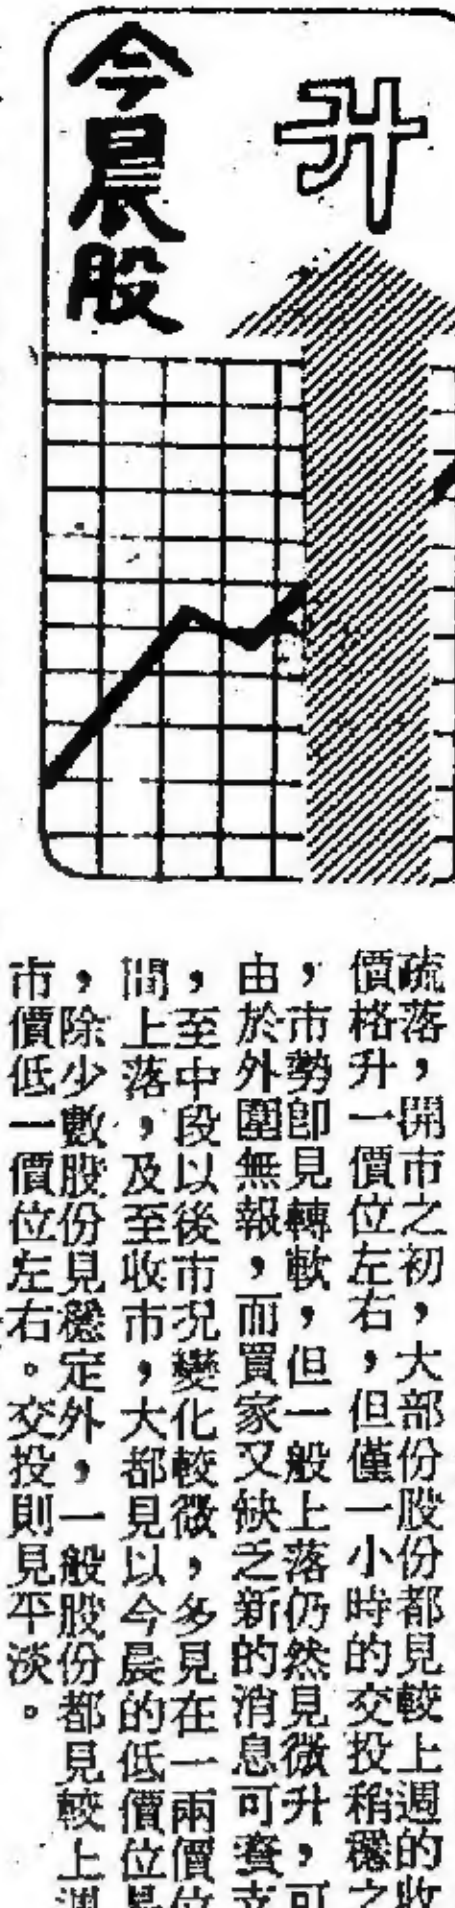 升
今晨股
疏落，開市之初，大部份股份都見較上週的收
價格升一價位左右，但僅一小時的交投稍穩之
，市勢卽見轉軟，但一般上落仍然見微升，可
由於外圍無報，而買家又缺乏新的消息可資支
，至中段以後市況變化較微，多見在一兩價位
間上落，及至收市，大都見以今晨的低價位
，除少數股份見穩定外，一般股份都見較上週
市價低一價位左右。交投則見平淡。